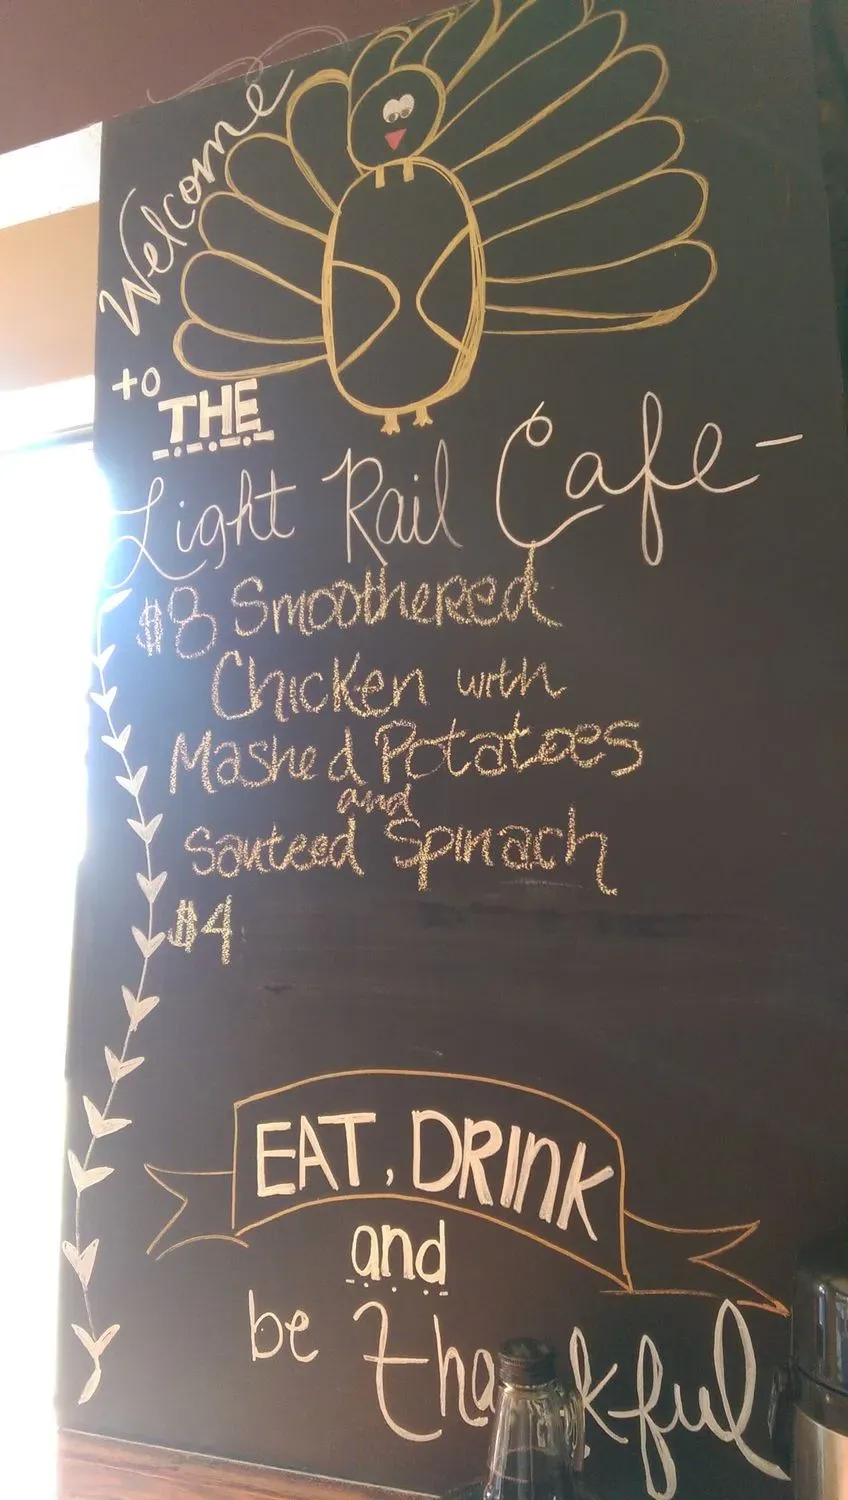 Welcome
to THE
Light Rail Cafe-
$8 Smoothered
Chicken with
Mashed Potatoes
and
Sauteed Spinach
$4
EAT, DRINK
and
be Thankful